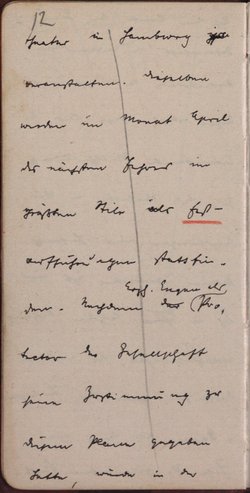 12
theater in Hamburg zu
veranstalten. Dieselben
werden im Monat April
des nächsten Jahres im
größten Stile als Fest-
aufführungen stattfin-
den. Nachdem
Erzh. Eugen als
der Pro-
tector der Gesellschaft
seine Zustimmung zu
diesem Plane gegeben
hatte, wurde in der